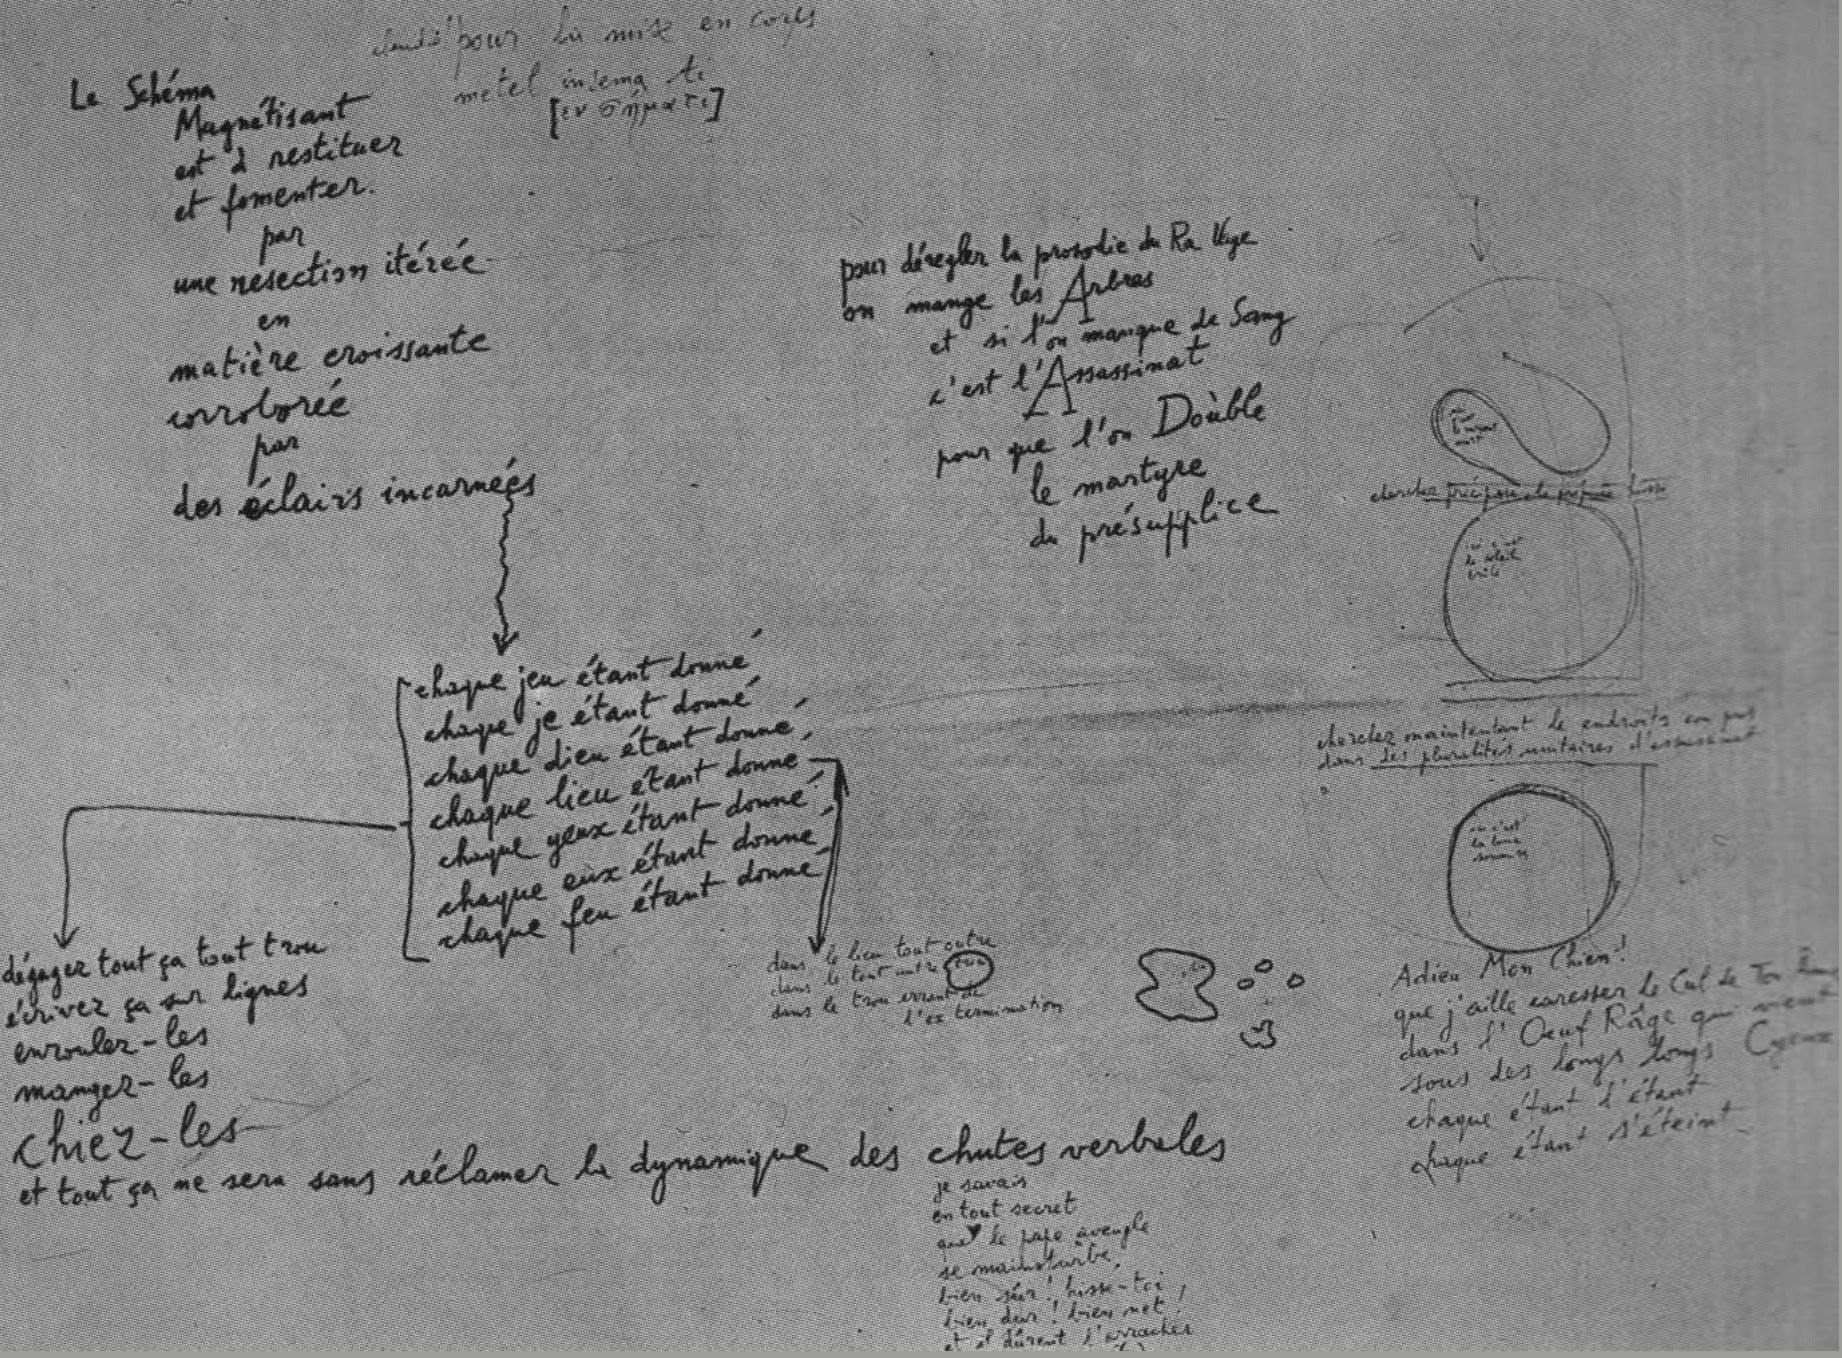 pour la mise en corps
metel insema ti
[εν σήματι]
Le Schéma
Magnétisant
est à restituer
et fomenter.
par
une resection itérée
en
matière croissante
corroborée
par
des éclairs incarnées
pour dérègler la prosodie du Ra
on mange les Arbres
et si l'on manque de Sang
c'est l'Assassinat
pour que l'on Doùble
le martyre
du présupplice
cherchez
chaque jeu étant donné
chaque je étant donné
chaque dieu étant donné
chaque lieu étant donné
chaque yeux étant donné
chaque eux étant donné
chaque feu étant donné
dégagez tout ça tout trou
écrivez ça sur lignes
enroulez-les
mangez-les
chiez-les
et tout ça ne sera sans réclamer la dynamique des chutes verbales
dans le lieu tout outre
dans le tout outre trou
dans le trou errant de
l'ex termination
cherchez maintentant le endroits
dans des pluralités unitaires
où c'est
la lune
Adieu Mon Chien!
que j'aille caresser le Cul de Ton
dans l'Oeuf Râge qui
sous des longs longs
chaque étant l'étant
chaque étant s'éteint
je savais
en tout secret
que le pape aveugle
se mainsturbe,
bien sûr! hisse-toi
bien dur! bien net!
et il dûrent l'arracher